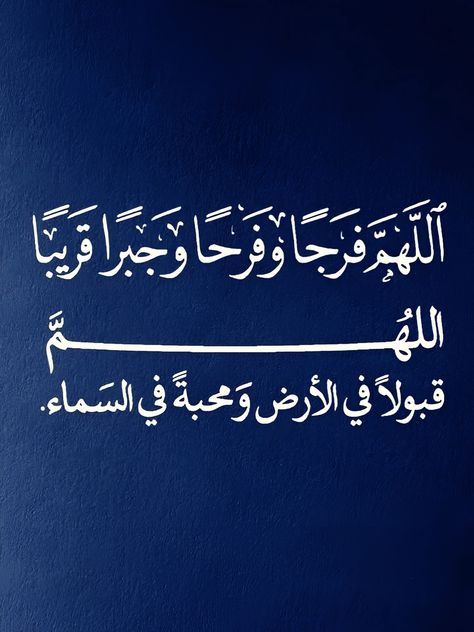 ٱللَّهُمَّ فَرَجًا وَفَرَحًا وَجَبرًا قَرِيبًا
اللهُـــــــــــــــمَّ
قبولاً في الأرض وَمحبةً في السَماء.